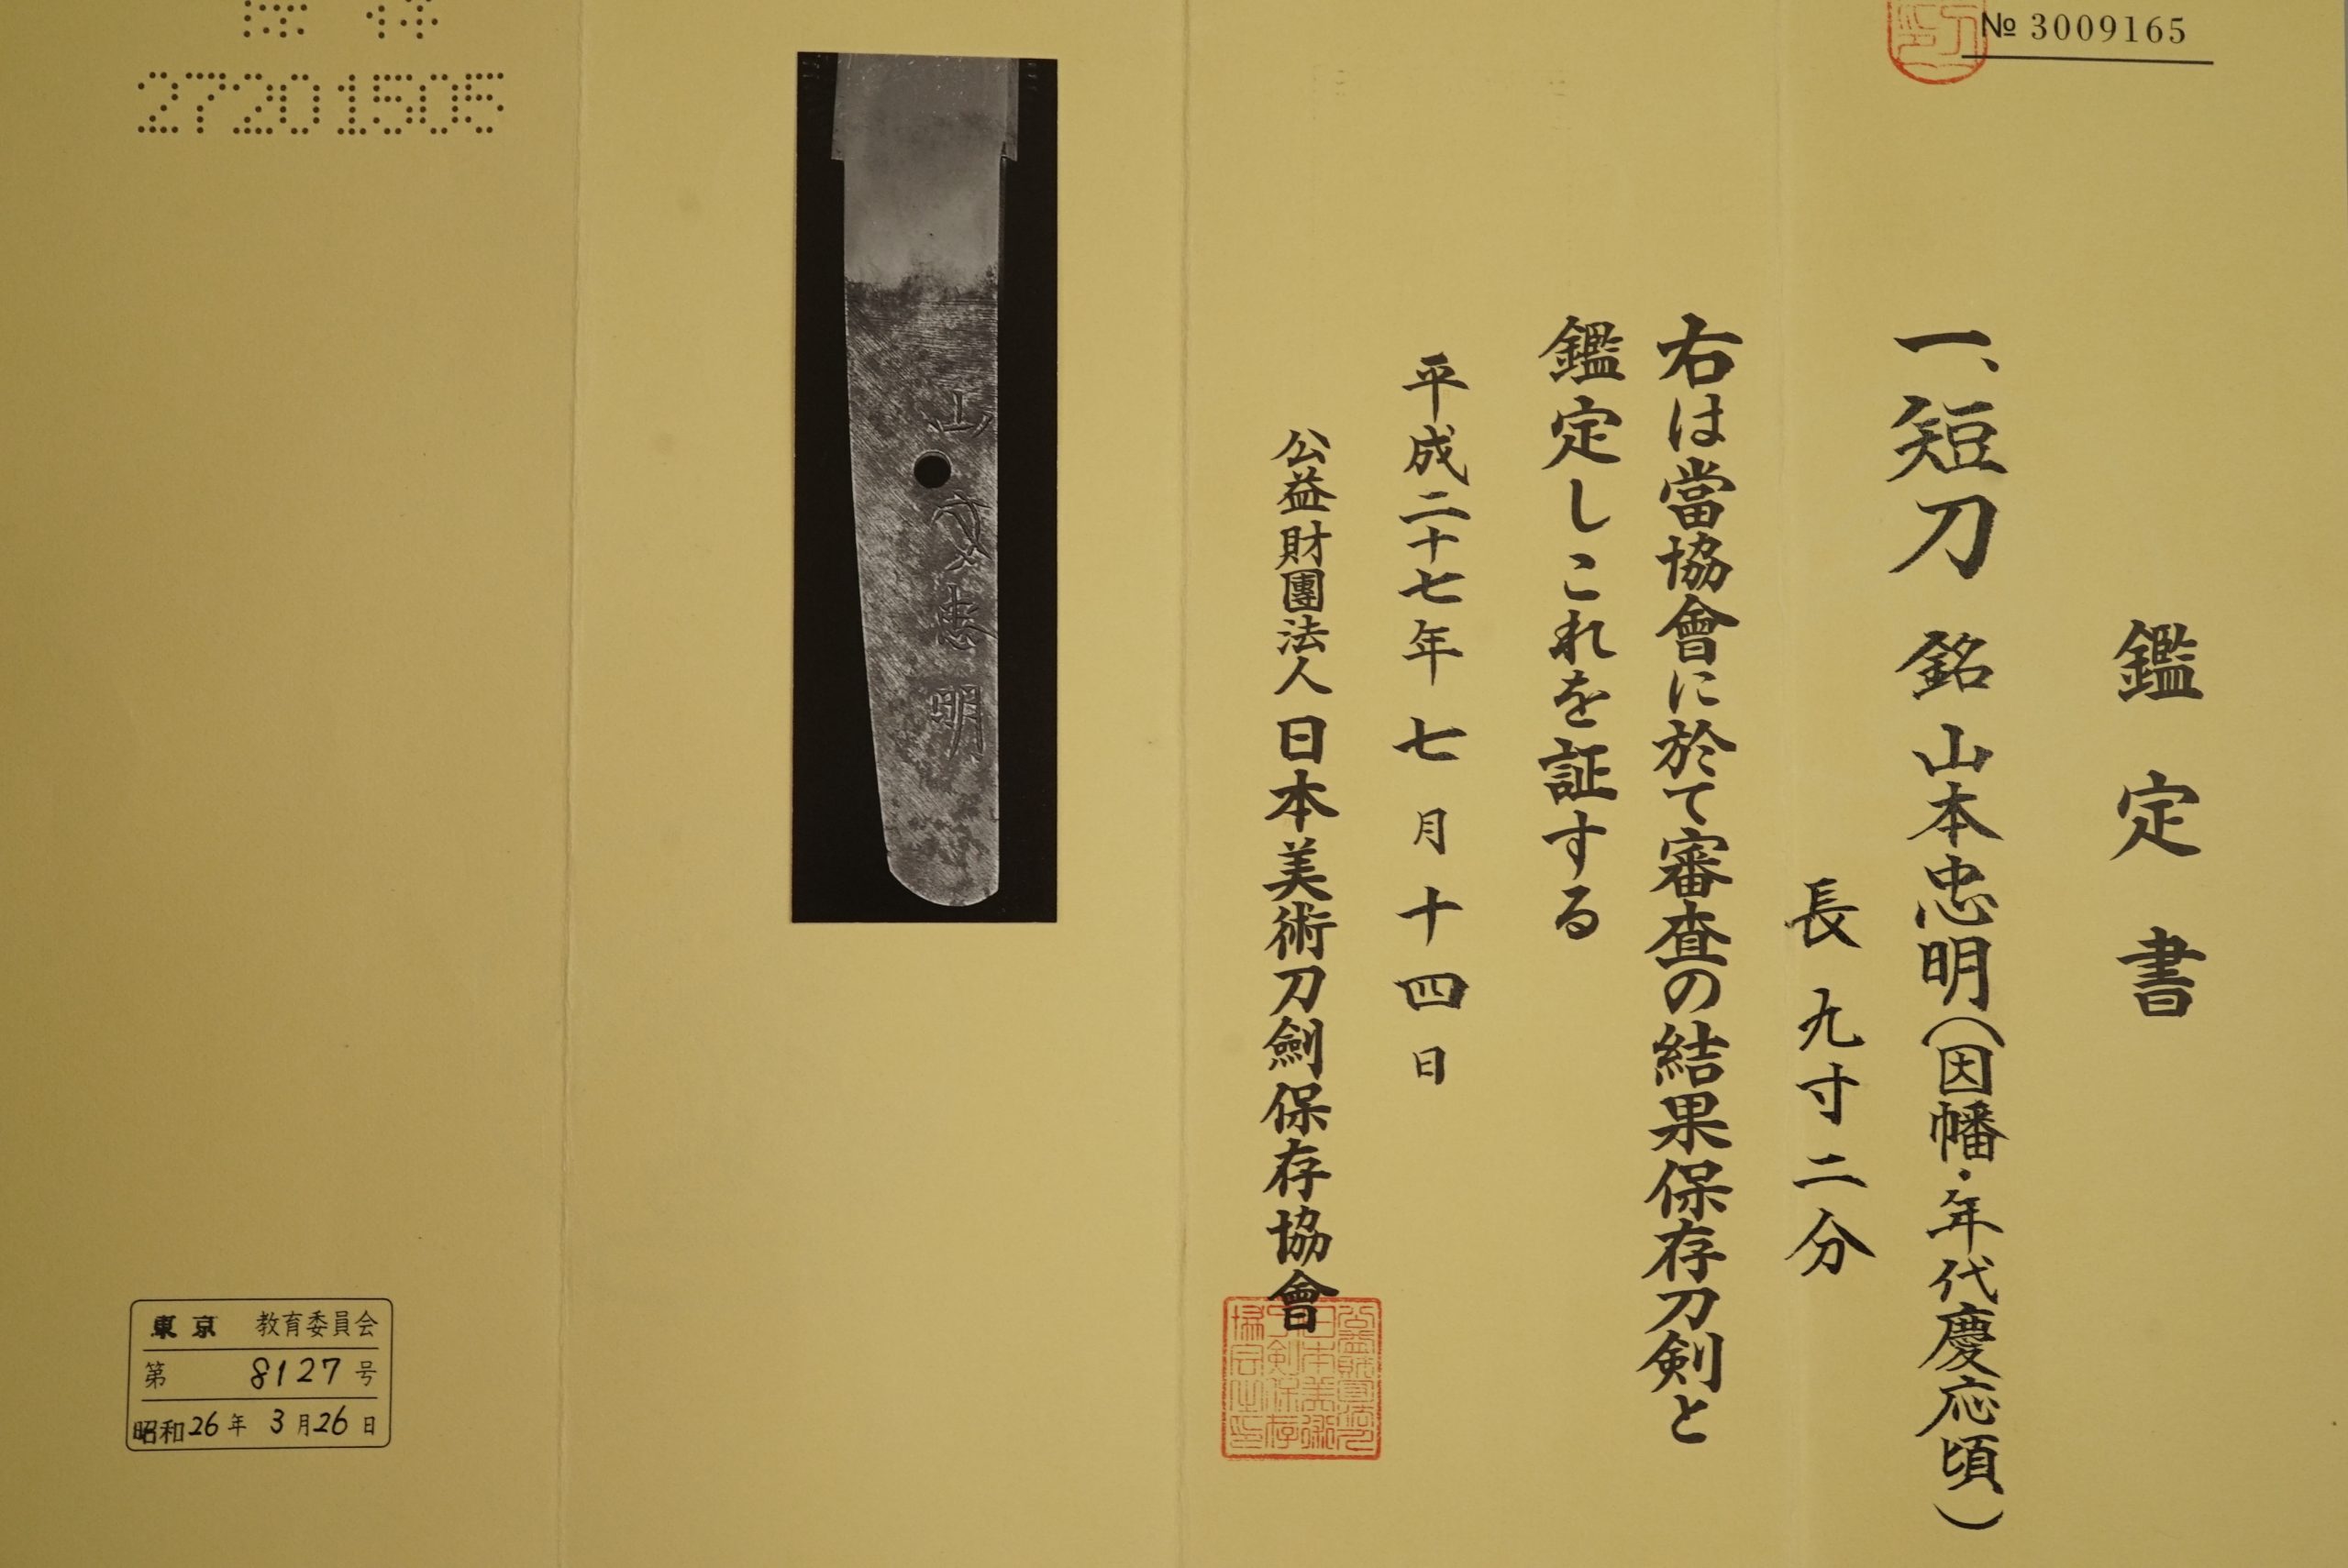 № 3009165
鑑定書
一、短刀 銘 山本忠明(因幡・年代慶応頃)
長 九寸二分
右は當協會に於て審査の結果保存刀剣と
鑑定しこれを証する
平成二十七年 七月十四日
公益財團法人日本美術刀劍保存協會
山
忠明
27201505
東京 教育委員会
第 8127 号
昭和26年 3月26日